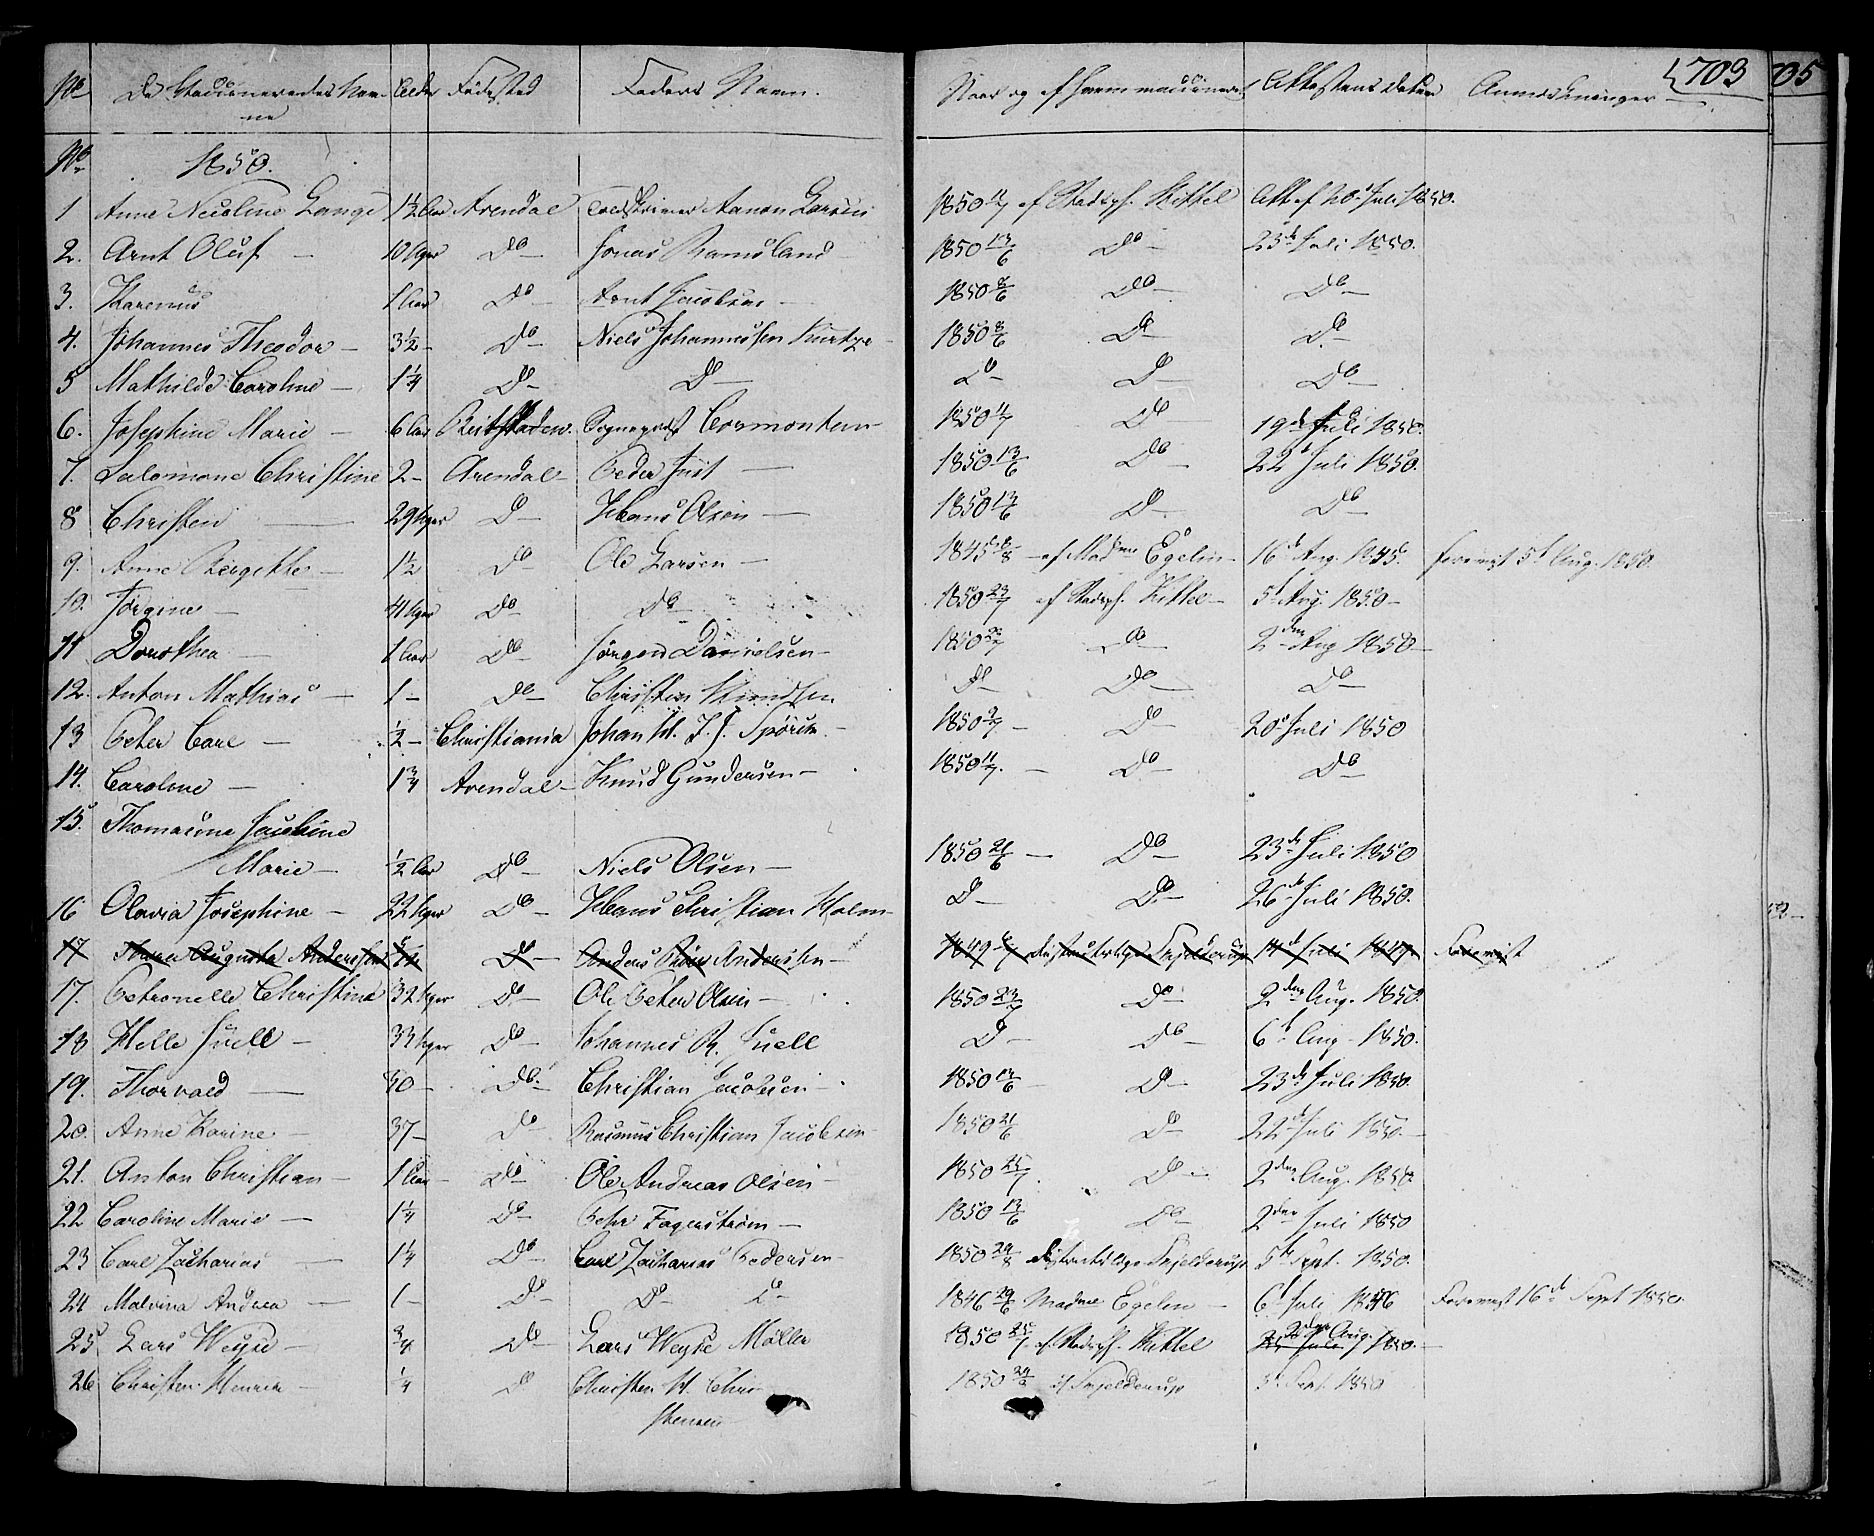 No | De Vaccineredes Nav- | Alder | Fødested | Faders Navn. | Naar og af hvem vaccineret | Attestens Datum | Anmærkninger | 703 | 705
ne
No 1850.
1 | Anne Nicoline Lange | 1½ Aar | Arendal | Toldskriver Aanon Larsen | 1850 11/7 af Stadsph. Kittel | Att. af 20d Juli 1850.
2. | Arnt Oluf — | 10 Uger | Do — | Jonas Ramsland | 1850 13/6 Do — | 23d Juli 1850.
3. | Karenus | 1 Aar | Do — | Arnt Jacobsen — | 1850 8/6 Do — | Do —
4. | Johannes Theodor — | 3½ — | Do — | Niels Johannessen | 1850 8/6 Do — | Do —
5 | Mathilde Caroline — | 1¼ | Do — | Do — | Do — Do — | Do —
6. | Josephine Marie — | 6 Aar | | Sogneprest Cormontan | 1850 4/7 Do | 19d Juli 1850.
7. | Salomone Christine | 2 — | Arendal — | Peder Just — | 1850 13/6 Do — | 22d Juli 1850.
8 | Christen — | 29 Uger | Do — | Hans Olsen — | 1850 13/6 Do — | Do —
9. | Anne Bergithe — | 1½ | Do — | Ole Larsen — | 1845 8/8 — af Madme Egelin — | 16d Aug. 1845. | fornyet 5d Aug. 1850.
10. | Jørgine — | 41 Uger | Do — | Do — | 1850 23/7 af Stadsph. Kittel — | 5d Aug. 1850 —
11 | Dorothea — | 1 Aar | Do — | Jørgen Danielsen — | 1850 Do — | 2den Aug 1850 —
12. | Anton Mathias — | 1 — | Do — | Christen Knudsen | Do — Do — | Do —
13 | Peter Carl — | ½ — | Christiania | Johan H. J. J. | 1850 2/7 — Do — | 20d Juli 1850
14. | Caroline — | 1¾ | Arendal — | Knud Gundersen — | 1850 11/7. — Do — | Do —
15. | Thomasine Jacobine
Marie — | ½ Aar | Do — | Niels Olsen — | 1850 21/6 — Do — | 23d Juli 1850
16 | Olavia Josephine — | 22 Uger | Do — | Hans Christian Holm — | Do — Do — | 26d Juli 1850.
17 | Augusta Anderssen | Do — | Anders Anderssen — | 1849 Districtslæge Tnjelderup | 14d Juli 1849. | Fornyet
17. | Petronelle Christine | 32 Uger | Do — | Ole Peter Olsen — | 1850 23/7 Do — | 2den Aug. 1850.
18 | Helle Juell — | 33 Uger | Do — | Johannes R. Juell | Do — Do — | 6d Aug — 1850.
19. | Thorvald — | 40 — | Do. | Christian Jacobsen — | 1850 13/6 Do — | 23d Juli 1850.
20. | Anne Karine — | 37 — | Do — | Rasmus Christian Jacobsen — | 1850 21/6 Do — | 22d Juli 1850. —
21. | Anton Christian — | 1 Aar — | Do — | Ole Andreas Olsen — | 1850 25/7. Do — | 2den Aug. 1850
22 | Caroline Marie — | 1¼ | Do — | Pehr Fagerstrøm — | 1850 13/6 Do — | 2den Juli 1850
23 | Carl Zacharias — | 1¼ | Do — | Carl Zacharias Pedersen — | 1850 29/8 Districtslæge Tnjelderup | 5te Sept. 1850.
24 | Malvina Andrea — | 1 — | Do — | Do — Do — | 1846 29/6 Madme Egelin — | 6d Juli 1846 | Fornyet 16de Sept 1850.
25 | Lars Weyse — | ¾ | Do — | Lars Weyse Møller | 1850 25/7 af Stadsph. Kittel | 2den Aug. 1850. —
26 | Christen Henrik — | ¼ | Do | Christen H. Chri-
stensen | 1850 29/8 af Tnjelderup | 5d Sept. 1850